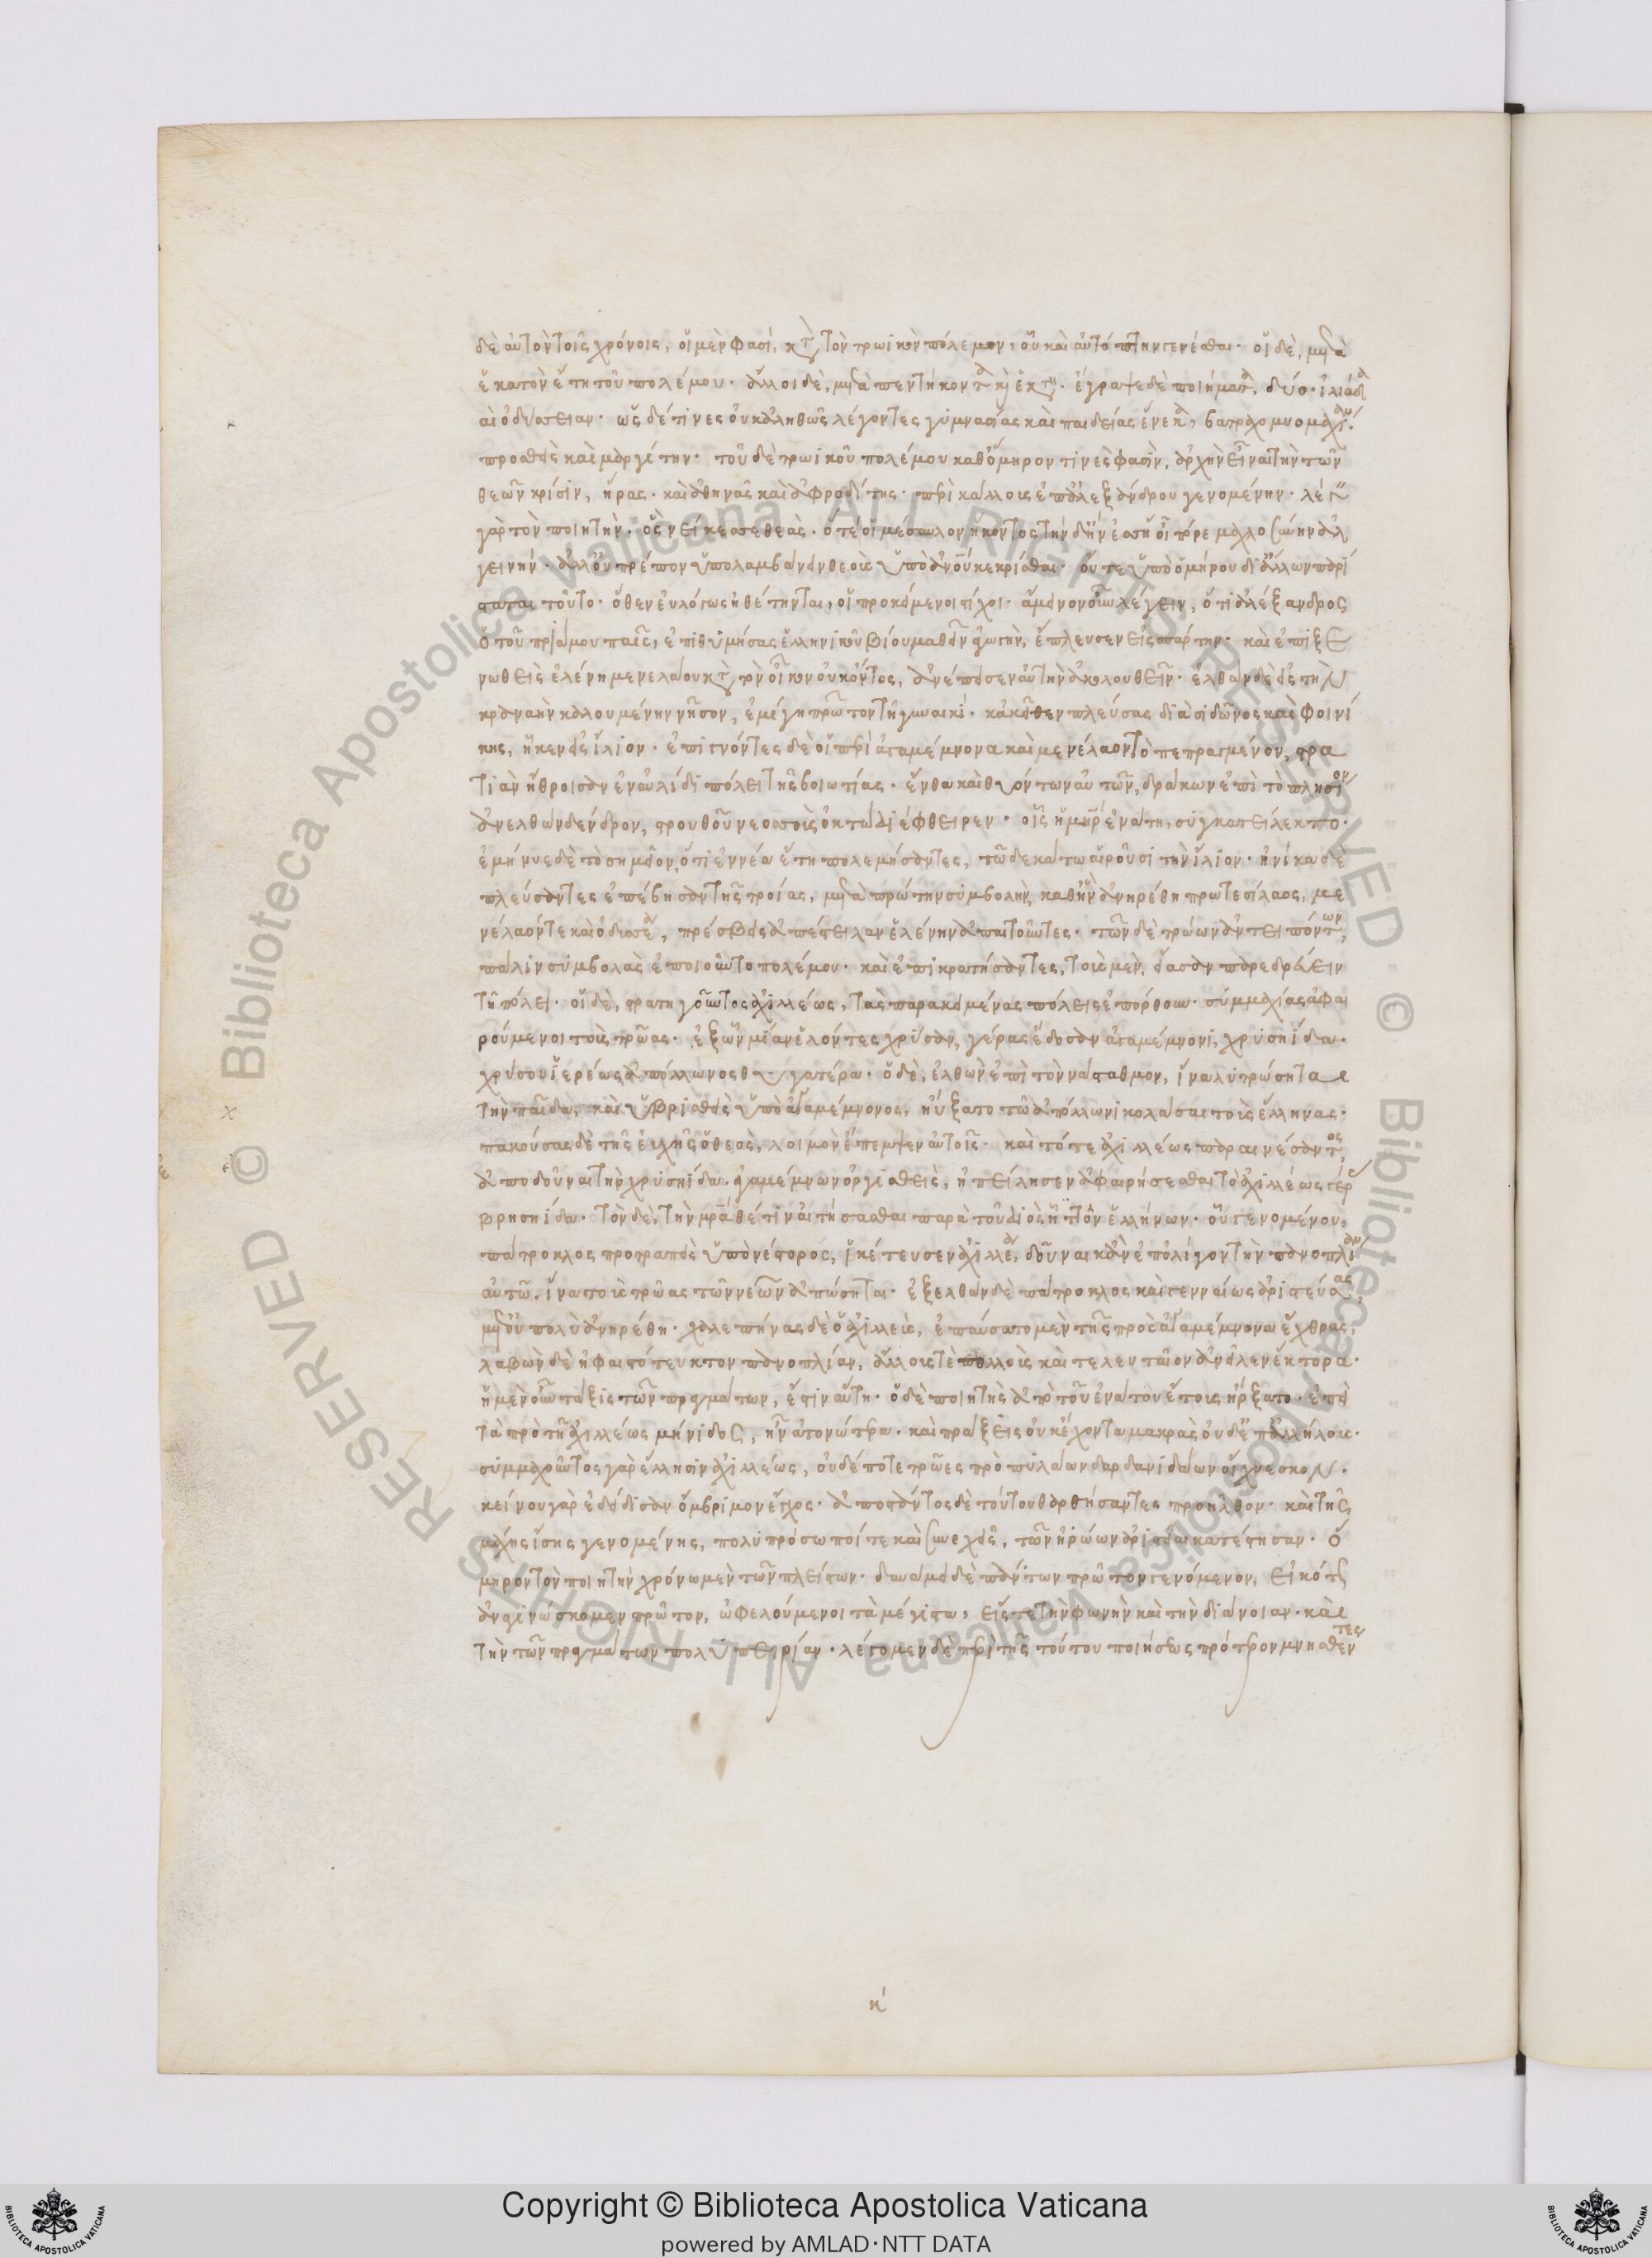 δὲ αὐτὸν τοῖς χρόνοις, οἱ μὲν φασί, κτ τὸν τρωϊκὸν πόλεμον, οὗ καὶ αὐτόπτην γενέσθαι. οἱ δὲ, μετὰ
ἑκατὸν ἔτη τοῦ πολέμου. ἄλλοι δὲ, μετὰ πεντήκοντα κὶ ἑκτ. ἔγραψε δὲ ποιήματα, δύο. ἰλιάδα
ὀδύσσειαν. ὡς δέ τινες οὐκ ἀληθῶς λέγοντες γυμνασίας καὶ παιδείας ἕνεκα, βατραχομυομαχίαν.
προσθεὶς καὶ μαργίτην. τοῦ δὲ τρωϊκοῦ πολέμου καθ' ὅμηρον τινές φασίν, ἀρχὴν εἶναι τὴν τῶν
θεῶν κρίσιν, ἥρας. καὶ ἀθηνᾶς καὶ ἀφροδίτης. περὶ κάλλους ἐπ' ἀλεξάνδρου γενομένην. λέγει
γὰρ τὸν ποιητὴν. ὃς νείκεσσε θεὰς. ὅτε οἱ μέσαυλον ἥκοντος τὴν δ' ᾔνεσ' ἥ οἱ πόρε μαχλοσύνην ἀλ
γεινήν. ἀλλ' οὐ πρέπον ὑπολαμβάνειν θεοὺς ὑπὸ ἀνου κεκρίσθαι. οὔτε ὑπὸ ὁμήρου δι' ἄλλων παρί
σταται τοῦτο. ὅθεν εὐλόγως ἠθέτηνται, οἱ προκείμενοι στίχοι. ἄμεινον οὖν λέγειν, ὅτι ἀλέξανδρος
ὁ τοῦ πριάμου παῖς, ἐπιθυμήσας ἑλληνικοῦ βίου μαθεῖν ἀγωγὴν, ἔπλευσεν εἰς σπάρτην. καὶ ἐπιξε
νωθεὶς ἑλένη μενελάου κτ τὸν οἶκον οὐκ ὄντος, ἀνέπεισεν αὐτὴν ἀκολουθεῖν. ἐλθὼν δὲ εἰς τὴν
κραναὴν καλουμένην νῆσον, ἐμίγη πρῶτον τῆ γυναικί. κἀκεῖθεν πλεύσας διὰ σιδῶνος καὶ φοινί
κης, ἧκεν εἰς ἴλιον. ἐπιγνόντες δὲ οἱ περὶ ἀγαμέμνονα καὶ μενέλαον τὸ πεπραγμένον, στρα
τιὰν ἤθροισαν ἐν αὐλίδι πόλει τῆς βοιωτίας. ἔνθα καὶ θυόντων αὐτῶν, δράκων ἐπὶ τὸ πλησίον
ἀνελθὼν δένδρον, στρουθοῦ νεοσσοὺς ὀκτὼ διέφθειρεν. οἷς ἡ μηρ ἐνάτη, συγκατείλεκτο.
ἐμήνυε δὲ τὸ σημεῖον, ὅτι ἐννέα ἔτη πολεμήσαντες, τῶ δεκάτω αἱροῦσι τὴν ἴλιον. ἡνίκα δὲ
πλεύσαντες ἐπέβησαν τῆς τροίας, μετὰ πρώτην συμβολὴν, καθ' ἣν ἀνηρέθη πρωτεσίλαος, με
νέλαόν τε καὶ ὀδυσσέα, πρέσβεις ἀπέστειλαν ἑλένην ἀπαιτοῦντες. τῶν δὲ τρώων ἀντειπόντων,
πάλιν συμβολὰς ἐποιοῦντο πολέμου. καὶ ἐπικρατήσαντες, τοὺς μὲν, εἴασαν παρεδρεύειν
τῆ πόλει. οἱ δὲ, στρατηγοῦντος ἀχιλλέως, τὰς παρακειμένας πόλεις ἐπόρθουν. συμμαχίας ἀφαι
ρούμενοι τοὺς τρῶας. ἐξ ὧν μίαν ἑλόντες χρύσαν, γέρας ἔδοσαν ἀγαμέμνονι, χρυσηίδα.
χρύσου ἱερέως ἀπόλλωνος θυγατέρα. ὁ δὲ, ἐλθὼν ἐπὶ τὸν ναύσταθμον, ἵνα λυτρώσηται
τὴν παῖδα, καὶ ὑβρισθεὶς ὑπὸ ἀγαμέμνονος, ηὔξατο τῶ ἀπόλλωνι κολάσαι τοὺς ἕλληνας.
πακούσας δὲ τῆς εὐχῆς ὁ θεὸς, λοιμὸν ἔπεμψεν αὐτοῖς. καὶ τότε ἀχιλλέως παραινέσαντος,
ἀποδοῦναι τὴν χρυσηίδα. ἀγαμέμνων ὀργισθεὶς, ἠπείλησεν ἀφαιρήσεσθαι τὸ ἀχιλλέως γέρας
βρησηίδα. τὸν δὲ, τὴν μρα θέτιν αἰτήσασθαι παρὰ τοῦ διὸς ἧτταν ἑλλήνων. οὗ γενομένου,
πάτροκλος προτραπεὶς ὑπὸ νέστορος, ἱκέτευσεν ἀχιλλέα, δοῦναι κἂν ἐπ' ὀλίγον τὴν πανοπλίαν
αὐτῶ. ἵνα τοὺς τρῶας τῶν νεῶν ἀπώσηται. ἐξελθὼν δὲ πάτροκλος καὶ γενναίως ἀριστεύσας,
μετ' οὐ πολὺ ἀνηρέθη. χαλεπήνας δὲ ὁ ἀχιλλεὺς, ἐπαύσατο μὲν τῆς πρὸς ἀγαμέμνονα ἔχθρας,
λαβὼν δὲ ἡφαιστότευκτον πανοπλίαν, ἄλλους τὲ πολλοὺς καὶ τελευταῖον ἀνεῖλεν ἕκτορα.
ἡ μὲν οὖν τάξις τῶν πραγμάτων, ἐστὶν αὕτη. ὁ δὲ ποιητὴς ἀπὸ τοῦ ἐνάτου ἔτους ἤρξατο. ἐπεὶ
τὰ πρὸ τῆς ἀχιλλέως μήνιδος, ἦν ἀτονώτερα. καὶ πράξεις οὐκ ἔχοντα μακρὰς οὐδ' ἐπαλλήλους.
συμμαχοῦντος γὰρ ἕλλησιν ἀχιλλέως, οὐδέποτε τρῶες πρὸ πυλάων δαρδανιδάων οἴχνεσκον.
κείνου γὰρ ἐδείδισαν ὄμβριμον ἔγχος. ἀποστάντος δὲ τούτου θαρσήσαντες προῆλθον. καὶ τῆς
μάχης ἴσης γενομένης, πολυπρόσωποί τε καὶ συνεχεῖς, τῶν ἡρώων ἀριστεῖαι κατέστησαν. ὅ
μηρον τὸν ποιητὴν χρόνω μὲν τῶν πλείστων. δυνάμει δὲ πάντων πρῶτον γενόμενον, εἰκότως
ἀναγινώσκομεν πρῶτον, ὠφελούμενοι τὰ μέγιστα, εἴς τε τὴν φωνὴν καὶ τὴν διάνοιαν. καὶ
τὴν τῶν πραγμάτων πολυπειρίαν. λέγομεν δὲ περὶ τῆς τούτου ποιήσεως πρότερον μνησθέντες
κ
Copyright © Biblioteca Apostolica Vaticana
powered by AMLAD·NTT DATA